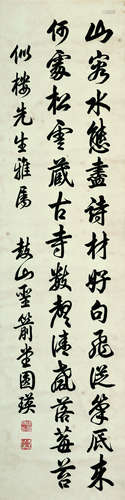 山容水態盡詩材好句飛從筆底來
何處松雲藏古寺數聲清磬落莓苔
似樓先生雅屬 鼓山聖箭堂圓瑛